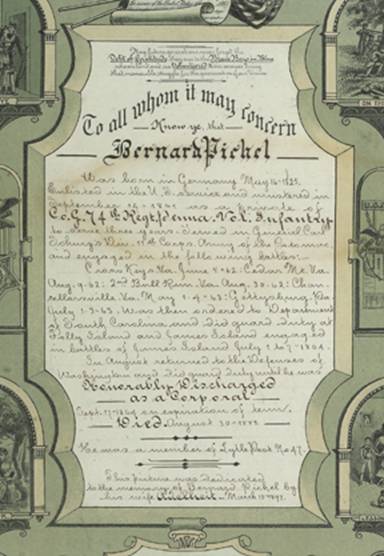 May future generations never forget the
Debt of Gratitude they owe to the Brave Boys in Blue
To all whom it may concern
Know ye, that
Bernard Pickel
Was born in Germany May 16-1829.
Enlisted in the U.S. service and mustered in
September 16-1861 as a private of
Co. G. 74th Regt. Penna. Vol. Infantry
to serve three years. Served in General Carl
Schurz's Div. 11th Corps, Army of the Potomac
and engaged in the following battles:
Cross Keys Va. June 8-62. Cedar Mt. Va.
Aug. 9-62; 2nd Bull Run Va. Aug. 30-62; Chan-
cellorsville Va. May 1-4-63; Gettysburg, Pa.
July 1-3-63. Was then ordered to Department
of South Carolina and did guard duty at
Folly Island and James Island engaged
in battles of James Island July 1 to 7-1864.
In August returned to the Defenses of
Washington and did guard duty until he was
Honorably Discharged
as a Corporal
Sept. 17-1864 on expiration of term.
Died August 30-
He was a member of Lytle Post No 47.
This picture was dedicated
to the memory of Bernard Pickel by
his wife Adelheit - March 10-1897.